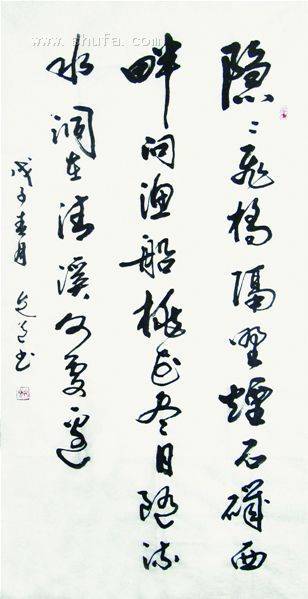 www.shufa.com
隐〻飛橋隔野煙石磯西
畔问渔船桃花尽日随流
水洞在清溪何處邊
戊子春月 书